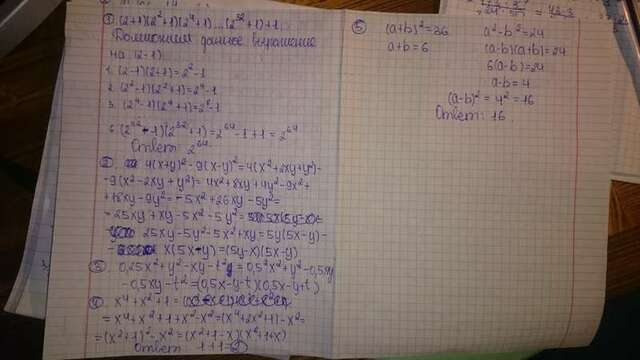 ① (2+1)(2²+1)(2⁴+1)...(2³²+1)+1
Домножим данное выражение
на (2-1)
1. (2-1)(2+1)=2²-1
2. (2²-1)(2²+1)=2⁴-1
3. (2⁴-1)(2⁴+1)=2⁸-1
6. (2³²-1)(2³²+1)=2⁶⁴-1+1=2⁶⁴
Ответ: 2⁶⁴
② 4(x+y)²-9(x-y)²=4(x²+2xy+y²)-
-9(x²-2xy+y²)=4x²+8xy+4y²-9x²+
+18xy-9y²=-5x²+26xy-5y²=
=25xy+xy-5x²-5y²=
25xy-5y²-5x²+xy=5y(5x-y)-
x(5x-y)=(5y-x)(5x-y)
③ 0,25x²+y²-xy-t²=0,5²x²+y²-0,5xy
-0,5xy-t²=(0,5x-y-t)(0,5x-y+t)
④ x⁴+x²+1=
=x⁴+x²+1+x²-x²=(x⁴+2x²+1)-x²=
=(x²+1)²-x²=(x²+1-x)(x²+1+x)
Ответ: 1+1=
⑤ (a+b)²=36
a+b=6
a²-b²=24
(a-b)(a+b)=24
6(a-b)=24
a-b=4
(a-b)²=4²=16
Ответ: 16